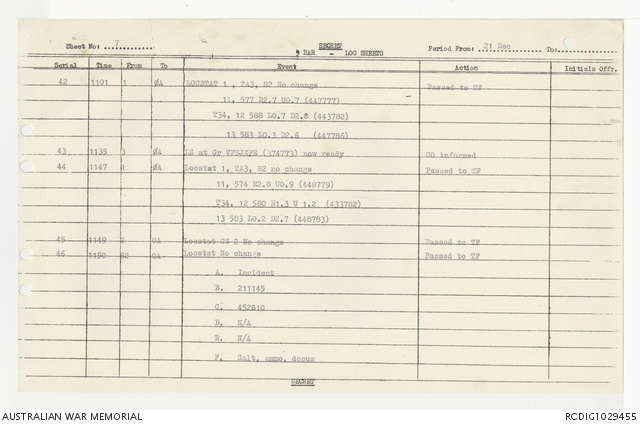 Sheet No: 7 SECRET Period From: 21 Dec To:
9 RAR - LOG SHEETS
Serial Time From To Event Action Initials Offr.
42 1101 1 ØA LOCSTAT 1, TA3, H2 No change Passed to TF
11, 577 R2.7 U0.7 (447777)
T34, 12 588 L0.7 D2.8 (443782)
13 583 L0.3 D2.6 (447786)
43 1135 3 ØA LZ at Gr (374773) now ready CO informed
44 1147 ØA Locstat 1, TA3, H2 no change Passed to TF
11, 574 R2.8 U0.9 (448779)
T34, 12 580 R1.3 U 1.2 (433782)
13 583 L0.2 D2.7 (448783)
45 1149 2 0A Locstat CS 2 No change Passed to TF
46 1150 82 0A Locstat No change Passed to TF
A. Incident
B. 211145
C. 452810
D. N/A
E. N/A
F. Salt, ammo, docus
SECRET
AUSTRALIAN WAR MEMORIAL RCDIG1029455